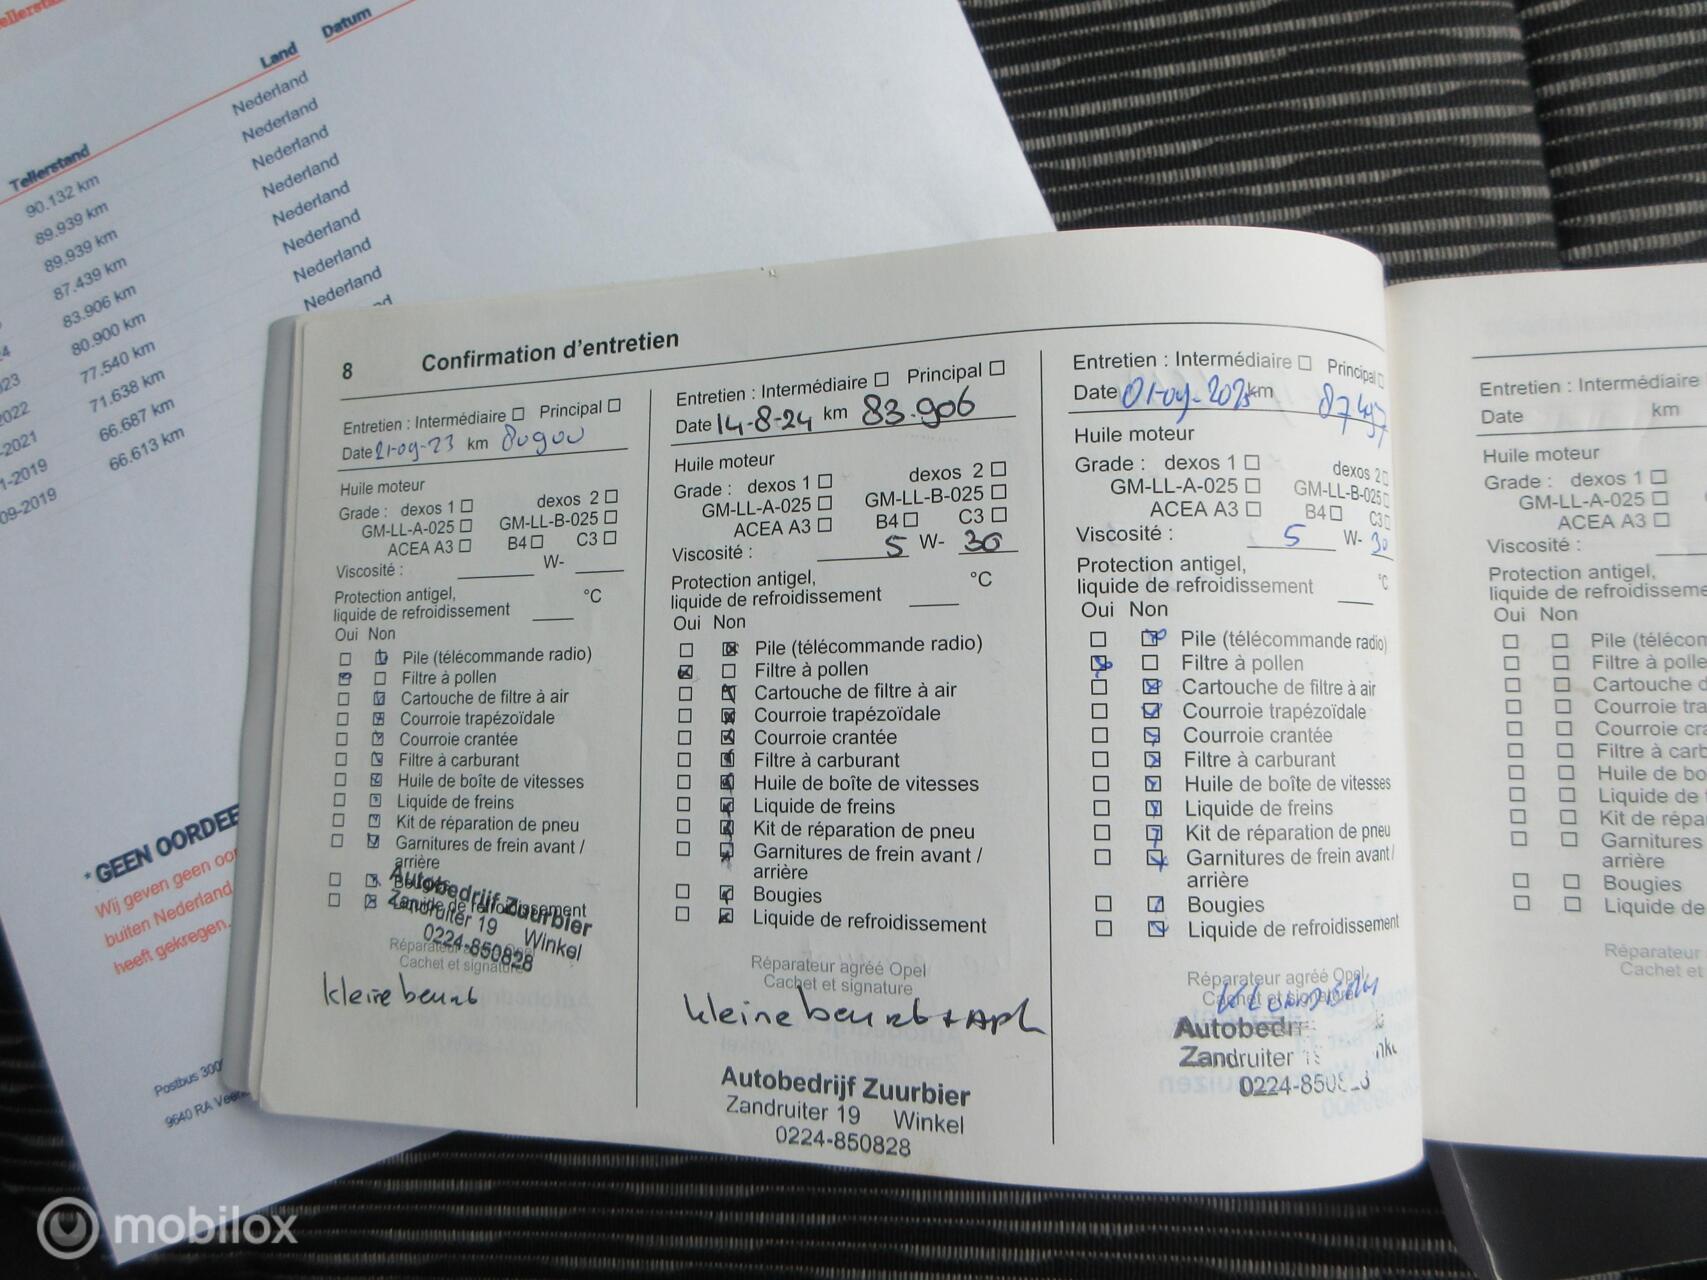 Tellerstand
Land
Datum
90.132 km
Nederland
89.939 km
Nederland
89.939 km
Nederland
87.439 km
Nederland
83.906 km
Nederland
80.900 km
Nederland
77.540 km
Nederland
71.638 km
Nederland
66.687 km
66.613 km
2022
-2021
-2019
09-2019
* GEEN OORDEE
Wij geven geen oor
buiten Nederland
heeft gekregen.
Postbus 300
9640 RA Vee
8 Confirmation d'entretien
Entretien : Intermédiaire ☐ Principal ☐
Date 21-09-23 km 80900
Huile moteur
Grade : dexos 1 ☐ dexos 2 ☐
GM-LL-A-025 ☐ GM-LL-B-025 ☐
ACEA A3 ☐ B4 ☐ C3 ☐
Viscosité : W-
Protection antigel, °C
liquide de refroidissement
Oui Non
Pile (télécommande radio)
Filtre à pollen
Cartouche de filtre à air
Courroie trapézoïdale
Courroie crantée
Filtre à carburant
Huile de boîte de vitesses
Liquide de freins
Kit de réparation de pneu
Garnitures de frein avant /
arrière
Bougies
Liquide de refroidissement
Autobedrijf Zuurbier
Zandruiter 19 Winkel
0224-850828
Réparateur
Cachet et signature
kleine beurt
Entretien : Intermédiaire ☐ Principal ☐
Date 14-8-24 km 83.906
Huile moteur
Grade : dexos 1 ☐ dexos 2 ☐
GM-LL-A-025 ☐ GM-LL-B-025 ☐
ACEA A3 ☐ B4 ☐ C3 ☐
Viscosité : 5 W- 30
Protection antigel, °C
liquide de refroidissement
Oui Non
Pile (télécommande radio)
Filtre à pollen
Cartouche de filtre à air
Courroie trapézoïdale
Courroie crantée
Filtre à carburant
Huile de boîte de vitesses
Liquide de freins
Kit de réparation de pneu
Garnitures de frein avant /
arrière
Bougies
Liquide de refroidissement
Réparateur agréé Opel
Cachet et signature
kleine beurt + APK
Autobedrijf Zuurbier
Zandruiter 19 Winkel
0224-850828
Entretien : Intermédiaire ☐ Principal ☐
Date 01-09-2025 km
Huile moteur
Grade : dexos 1 ☐ dexos 2 ☐
GM-LL-A-025 ☐ GM-LL-B-025 ☐
ACEA A3 ☐ B4 ☐ C3 ☐
Viscosité : 5 W- 30
Protection antigel, °C
liquide de refroidissement
Oui Non
Pile (télécommande radio)
Filtre à pollen
Cartouche de filtre à air
Courroie trapézoïdale
Courroie crantée
Filtre à carburant
Huile de boîte de vitesses
Liquide de freins
Kit de réparation de pneu
Garnitures de frein avant /
arrière
Bougies
Liquide de refroidissement
Réparateur agréé Opel
Cachet et signature
Autobedri
Zandruiter
0224-850
Entretien : Intermédiaire
Date km
Huile moteur
Grade : dexos 1 ☐
GM-LL-A-025 ☐
ACEA A3 ☐
Viscosité :
Protection antigel,
liquide de refroidisseme
Oui Non
Pile (télécom
Filtre à polle
Cartouche d
Courroie tra
Courroie cra
Filtre à carb
Huile de bo
Liquide de
Kit de répa
Garnitures
arrière
Bougies
Liquide de
Répara
Cachet e
mobilox